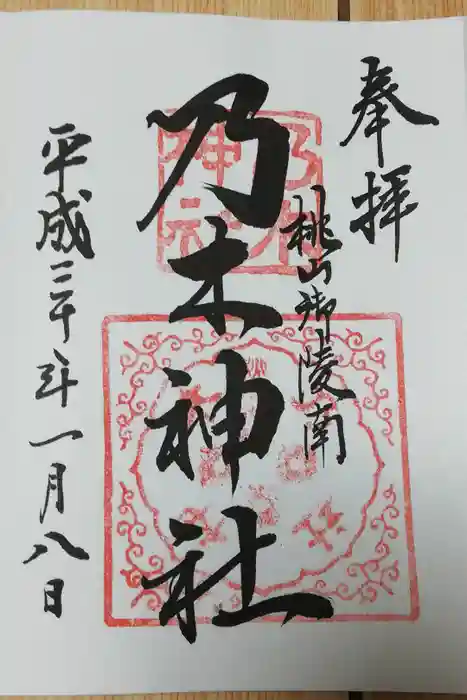 奉拝
桃山御陵南
乃木神社
平成三十年一月八日
乃木
神社